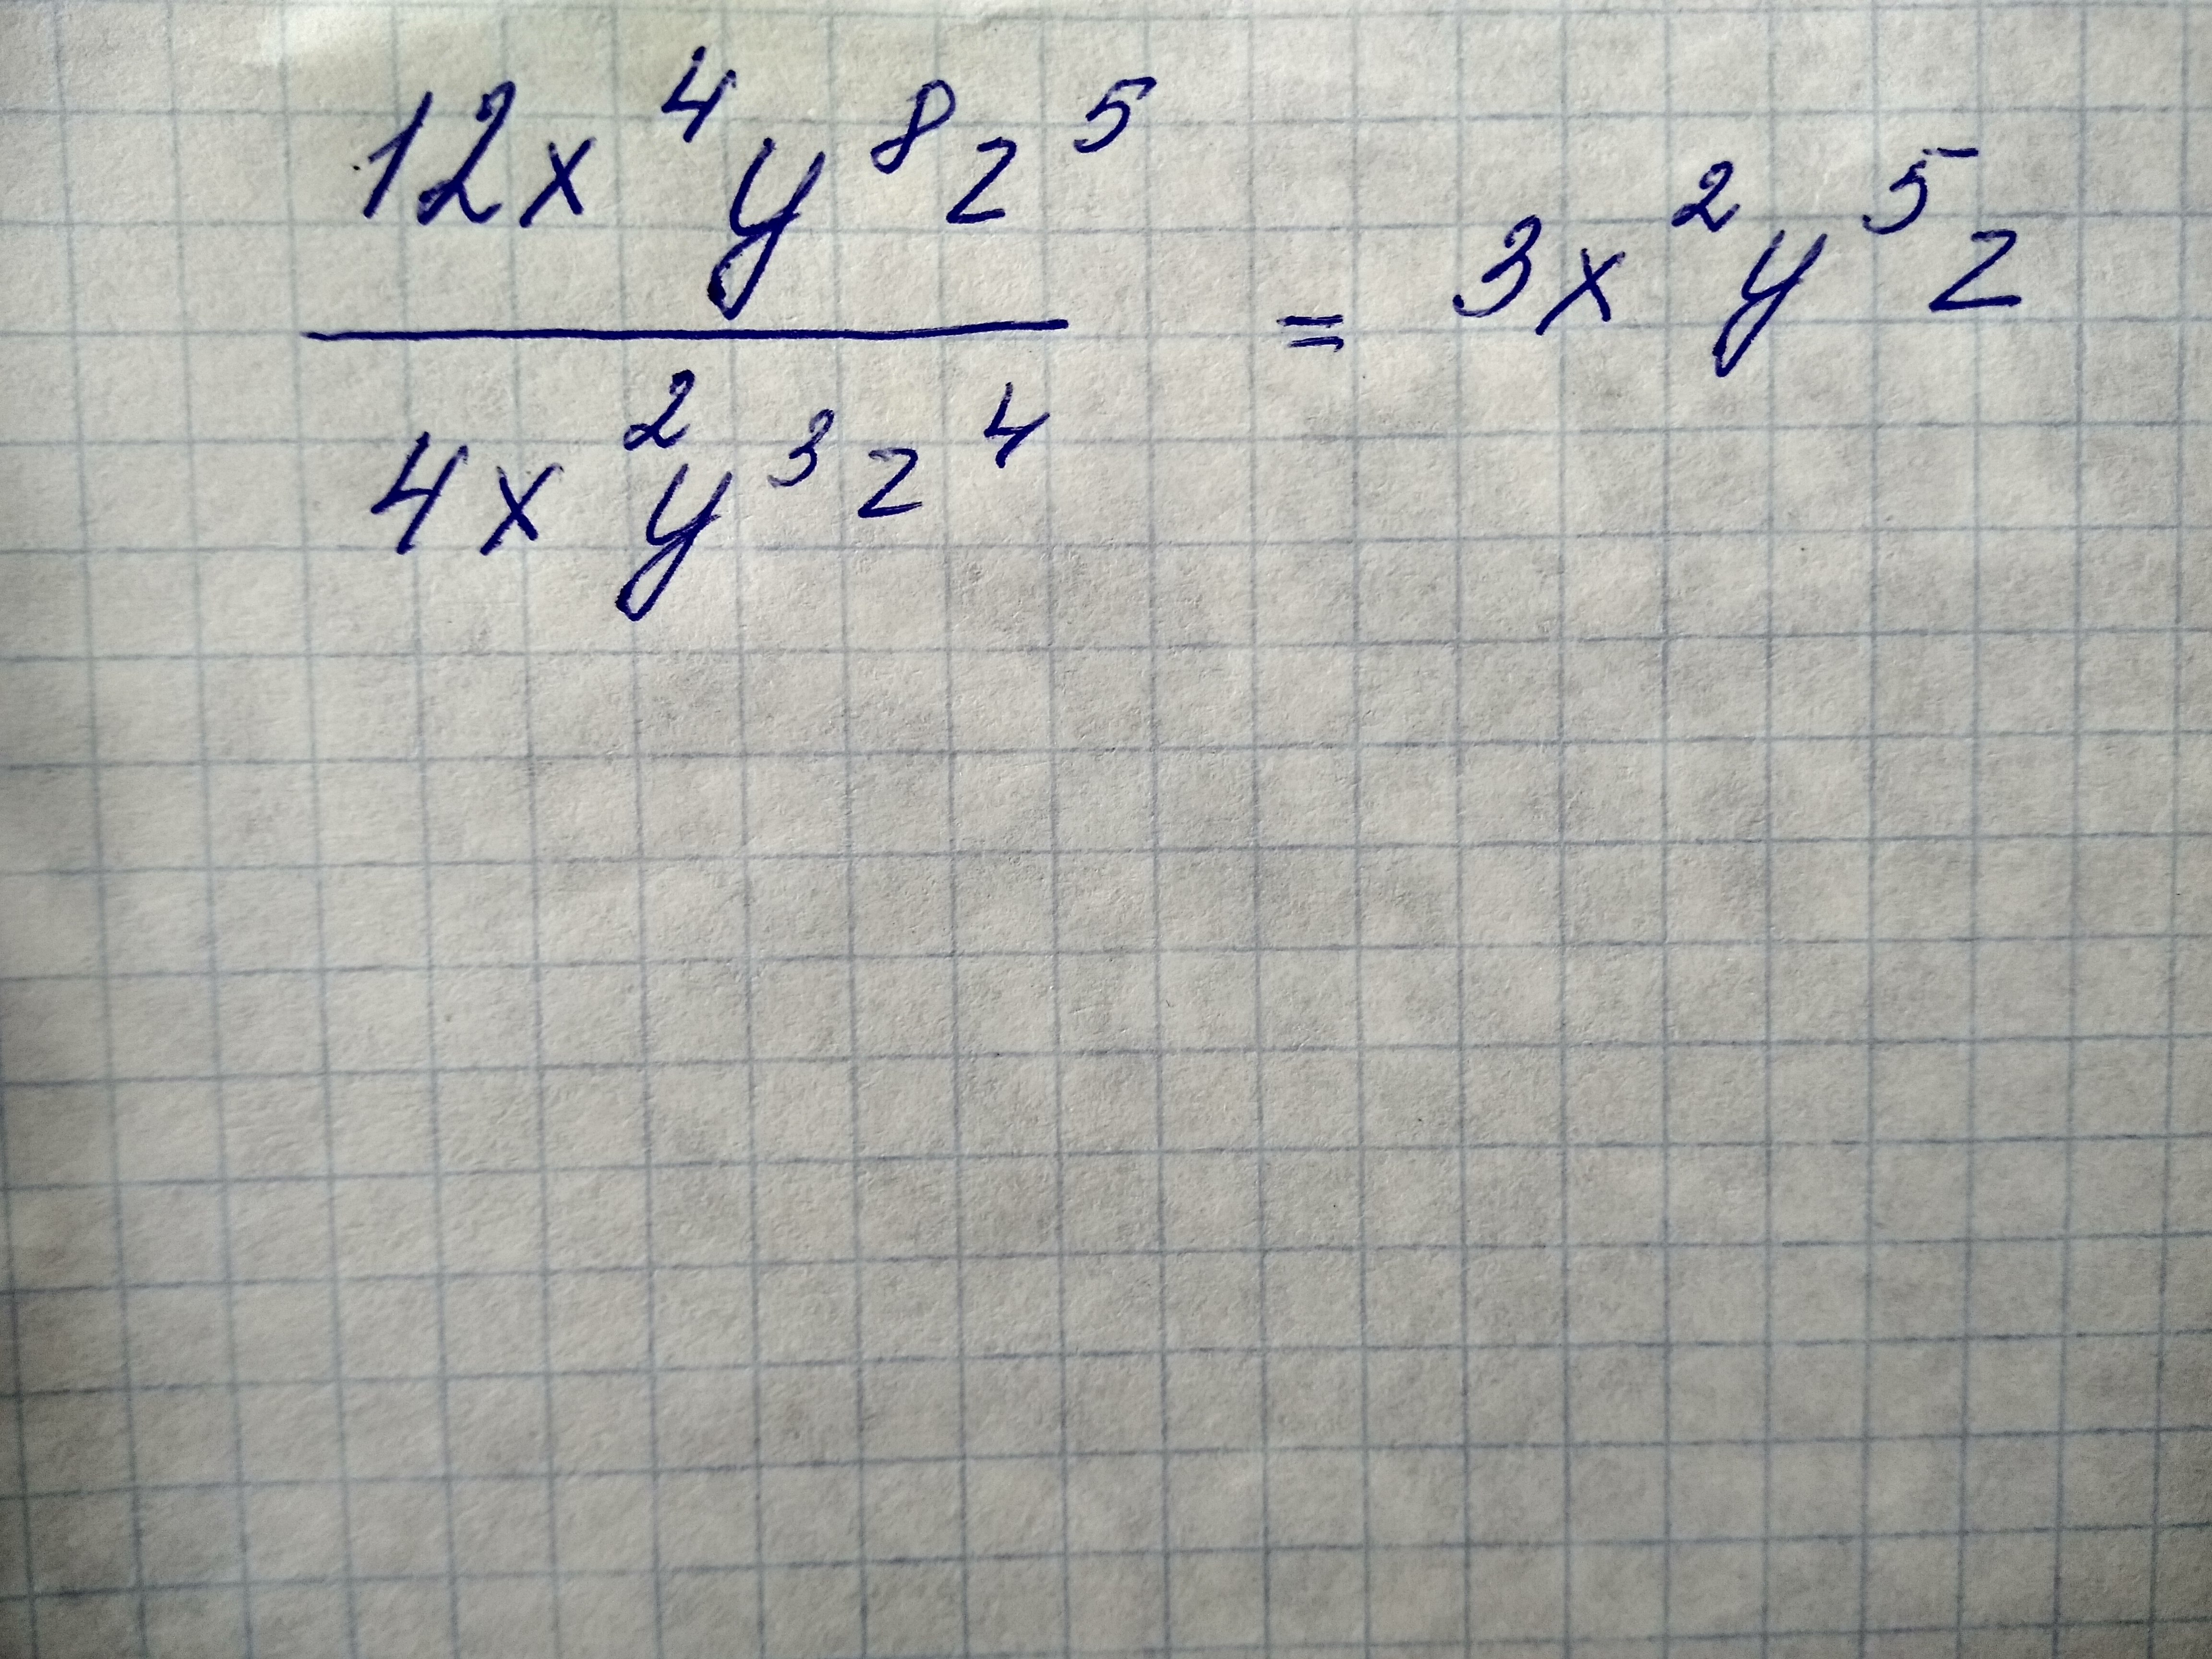 12x⁴y⁸z⁵
4x²y³z⁴
= 3x²y⁵z